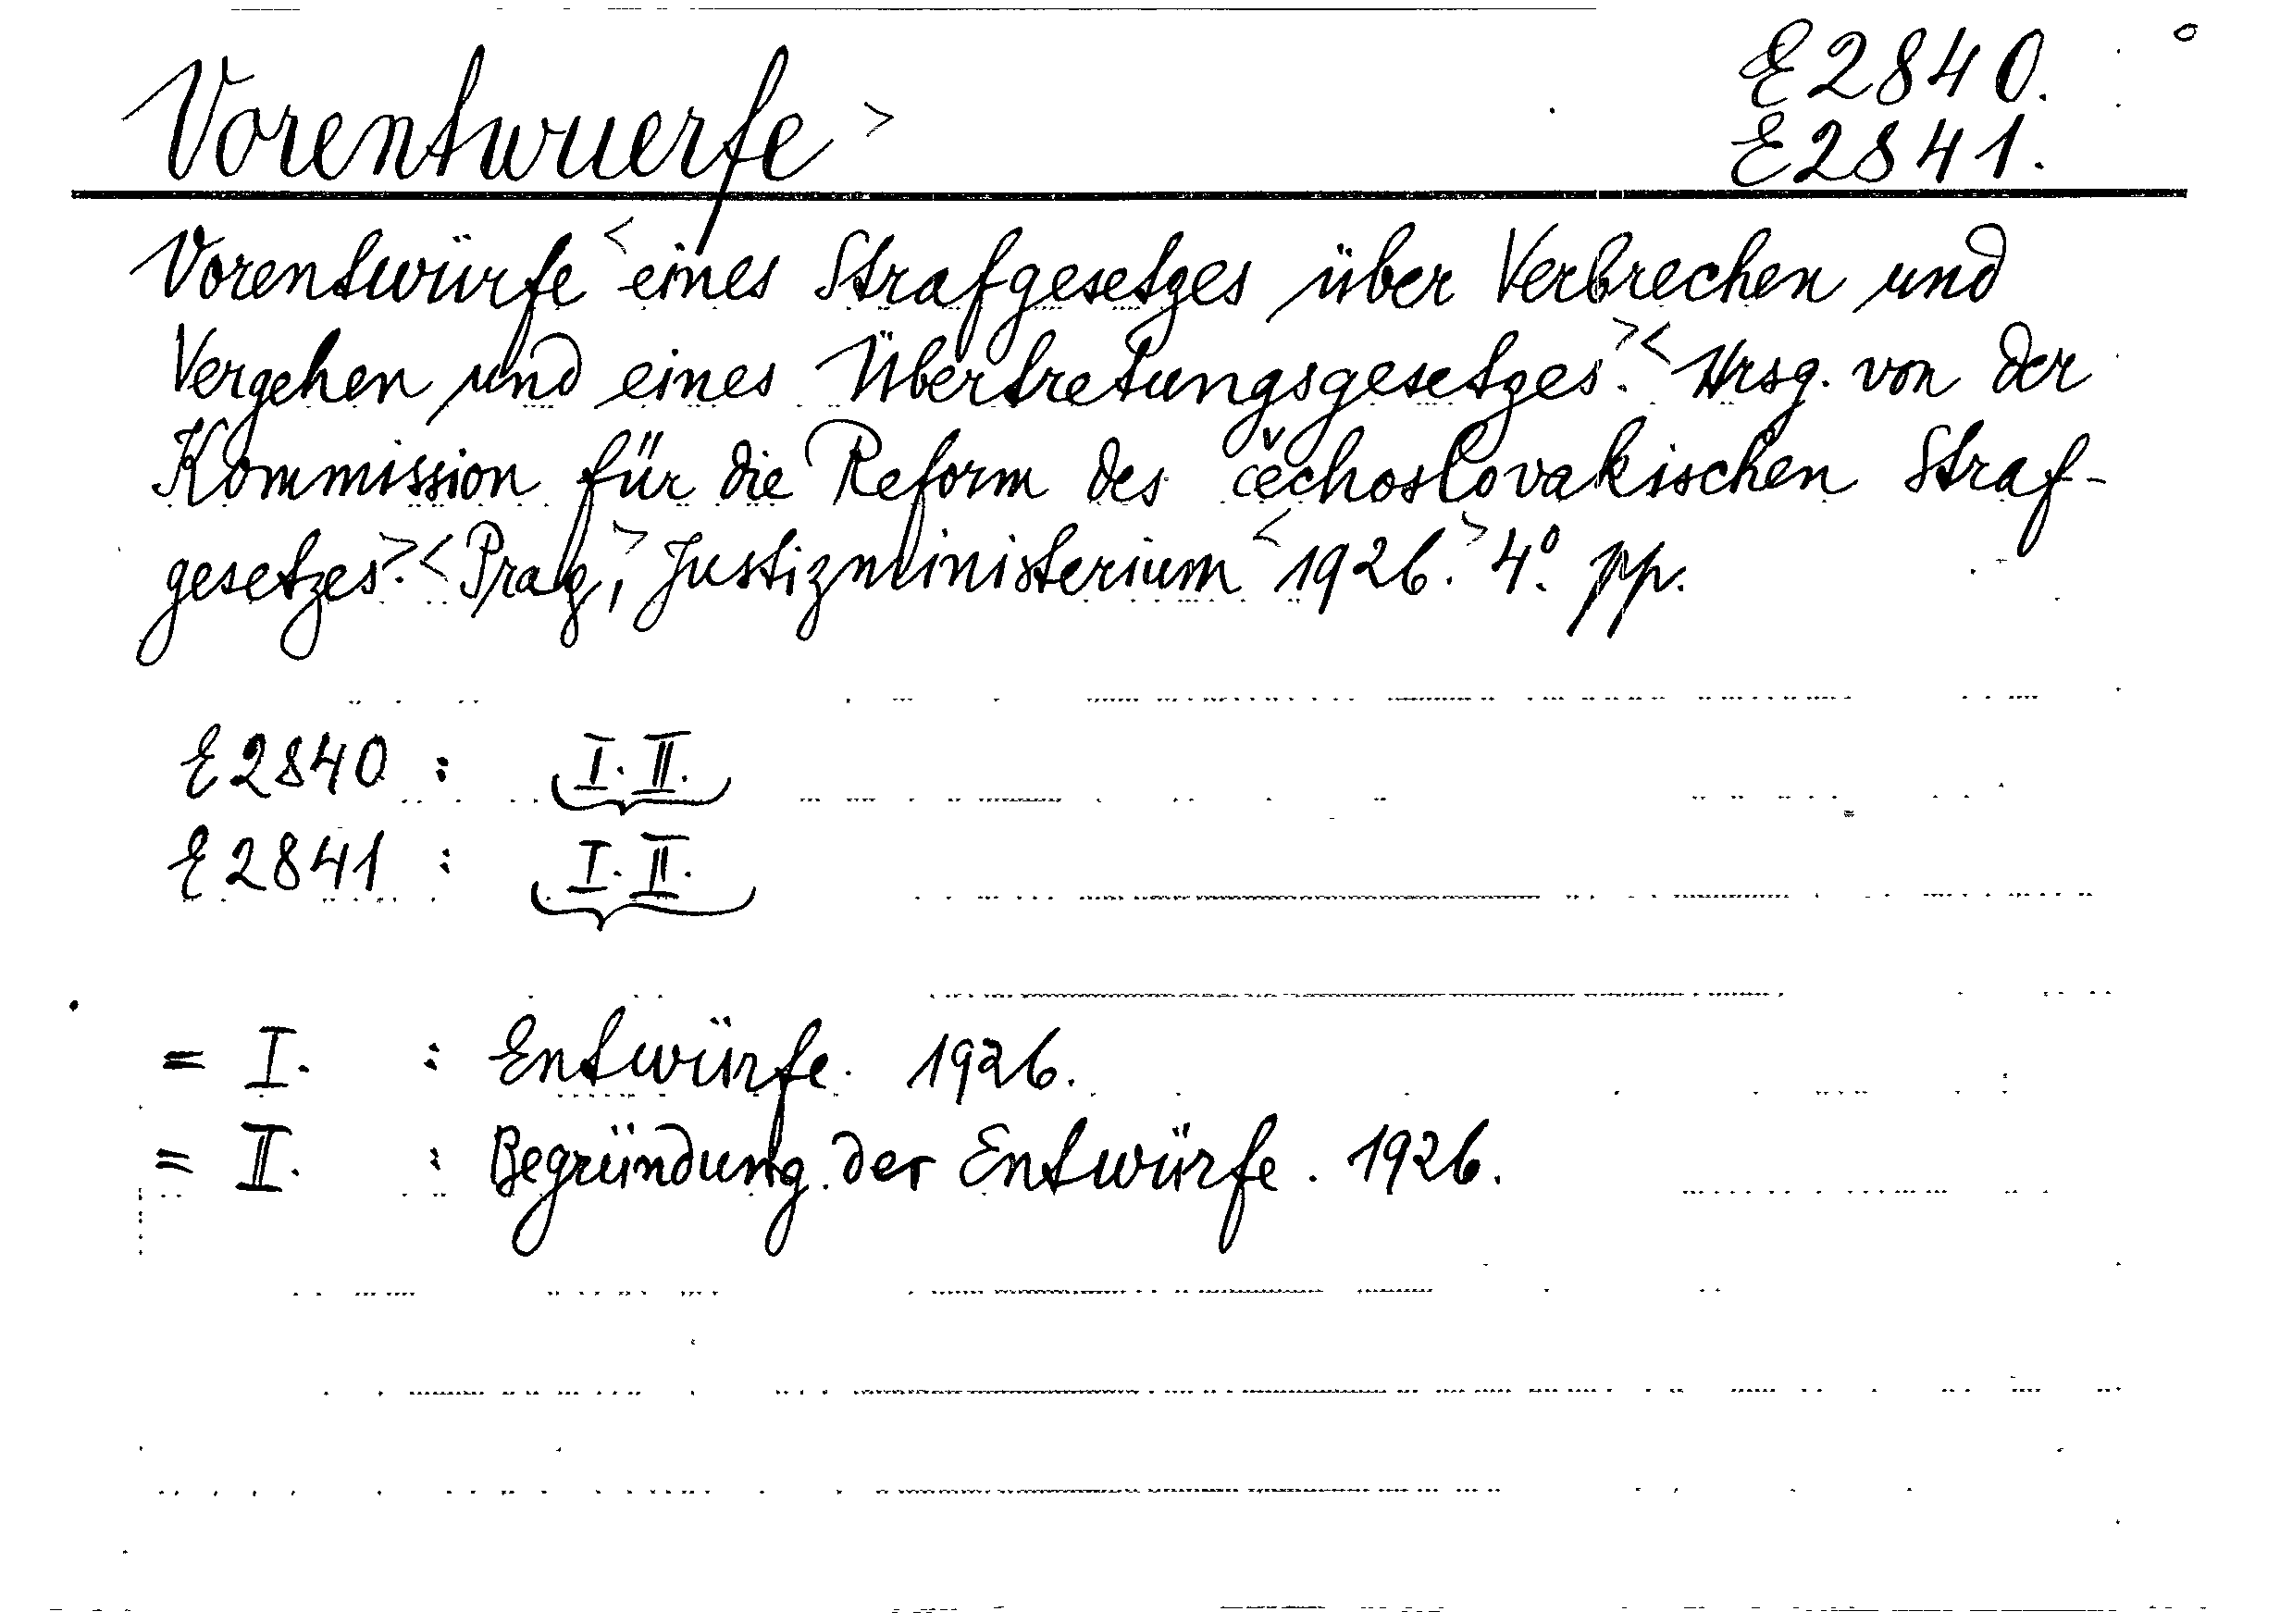 Vorentwuerfe > E2840.
E2841.
Vorentwürfe < eines Strafgesetzes über Verbrechen und
Vergehen und eines Übertretungsgesetzes.>< Hrsg. von der
Kommission für die Reform des čechoslovakischen Straf-
gesetzes.>< Prag,> Justizministerium < 1926.> 4°. pp.
E2840 : I. II.
E2841 : I. II.
= I. : Entwürfe. 1926.
= II. : Begründung der Entwürfe. 1926.